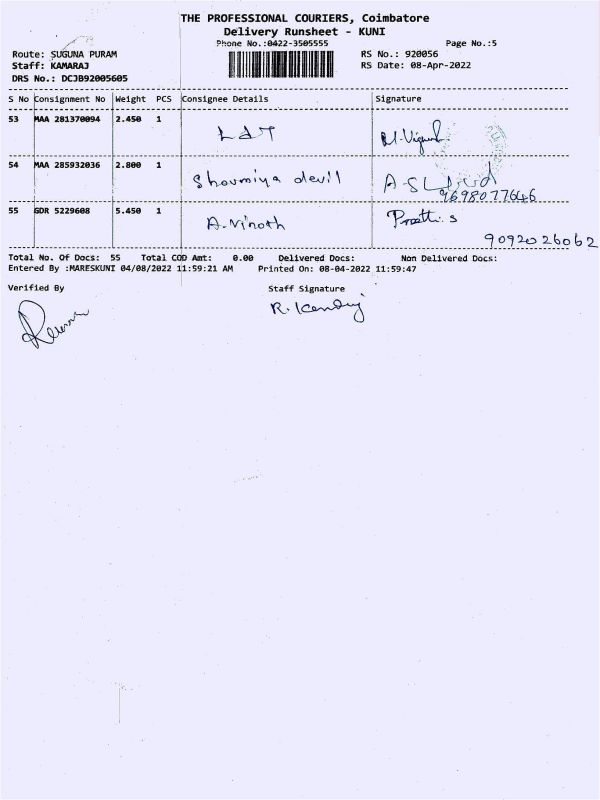 THE PROFESSIONAL COURIERS, Coimbatore
Delivery Runsheet - KUNI
Phone No.:0422-3505555
Page No.:5
Route: SUGUNA PURAM
RS No.: 920056
Staff: KAMARAJ
RS Date: 08-Apr-2022
DRS No.: DCJB92005605
S No Consignment No Weight PCS Consignee Details Signature
53 MAA 281370094 2.450 1
L&T
54 MAA 285932036 2.800 1
Shoumiya devil
9698077646
55 GDR 5229608 5.450 1
A.Vinoth
Preethi.s
9092026062
Total No. Of Docs: 55 Total COD Amt: 0.00 Delivered Docs: Non Delivered Docs:
Entered By :MARESKUNI 04/08/2022 11:59:21 AM Printed On: 08-04-2022 11:59:47
Verified By Staff Signature